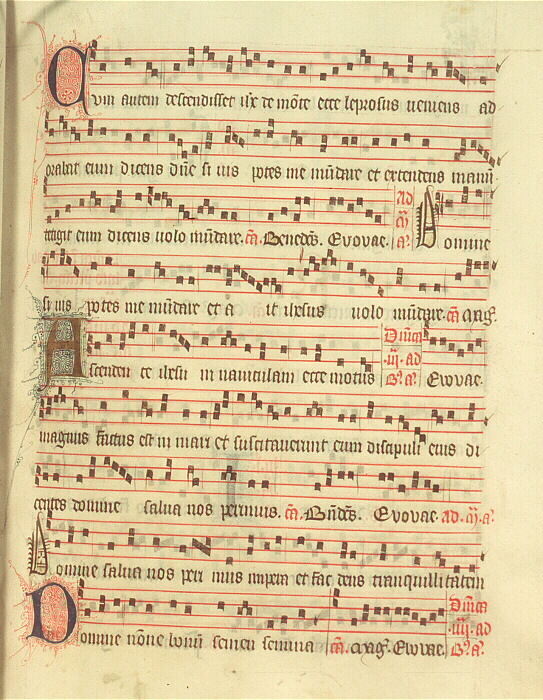 Cum autem descendisset ihc de mõte ecce leprosus ueniens ad
orabat eum dicens dñe si uis potes me mũdare et extendens manũ
tetigit eum dicens uolo mũdare. cã. Benedcs. Evovae. ad m̃. a. Domine
si uis potes me mũdare et a it ihesus uolo mũdare. cã mag.
Ascenden te ihesu in nauiculam ecce motus Dñica .iiij. ad B. a. Evovae.
magnus factus est in mari et suscitauerunt eum discipuli eius di
centes domine salua nos perimus. cã. Bñdcs. Evovae. ad. m̃. a.
Domine salua nos peri mus impera et fac deus tranquillitatem
Domine nõne bonũ semen semina cã. mag. Evovae. Dñica .iiij. ad B. a.